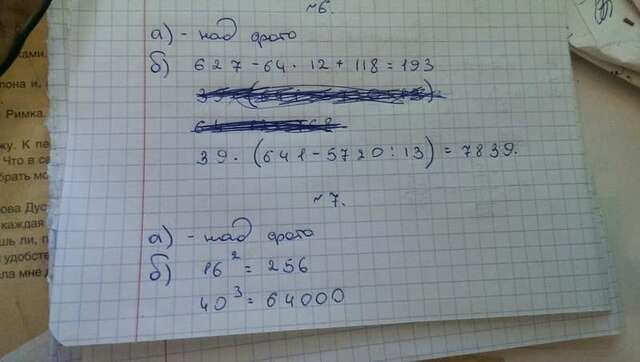 ~6.
а) - над фото
б) 627-64·12+118=193
39·(641-5720:13)=7839.
~7.
а) - над фото
б) 16²=256
40³=64000
ками.
лона и,
Римка.
жу. К пе
Что в са
брать мо
ова Дус
каждая
шь ли, п
удобстве
ла мне д